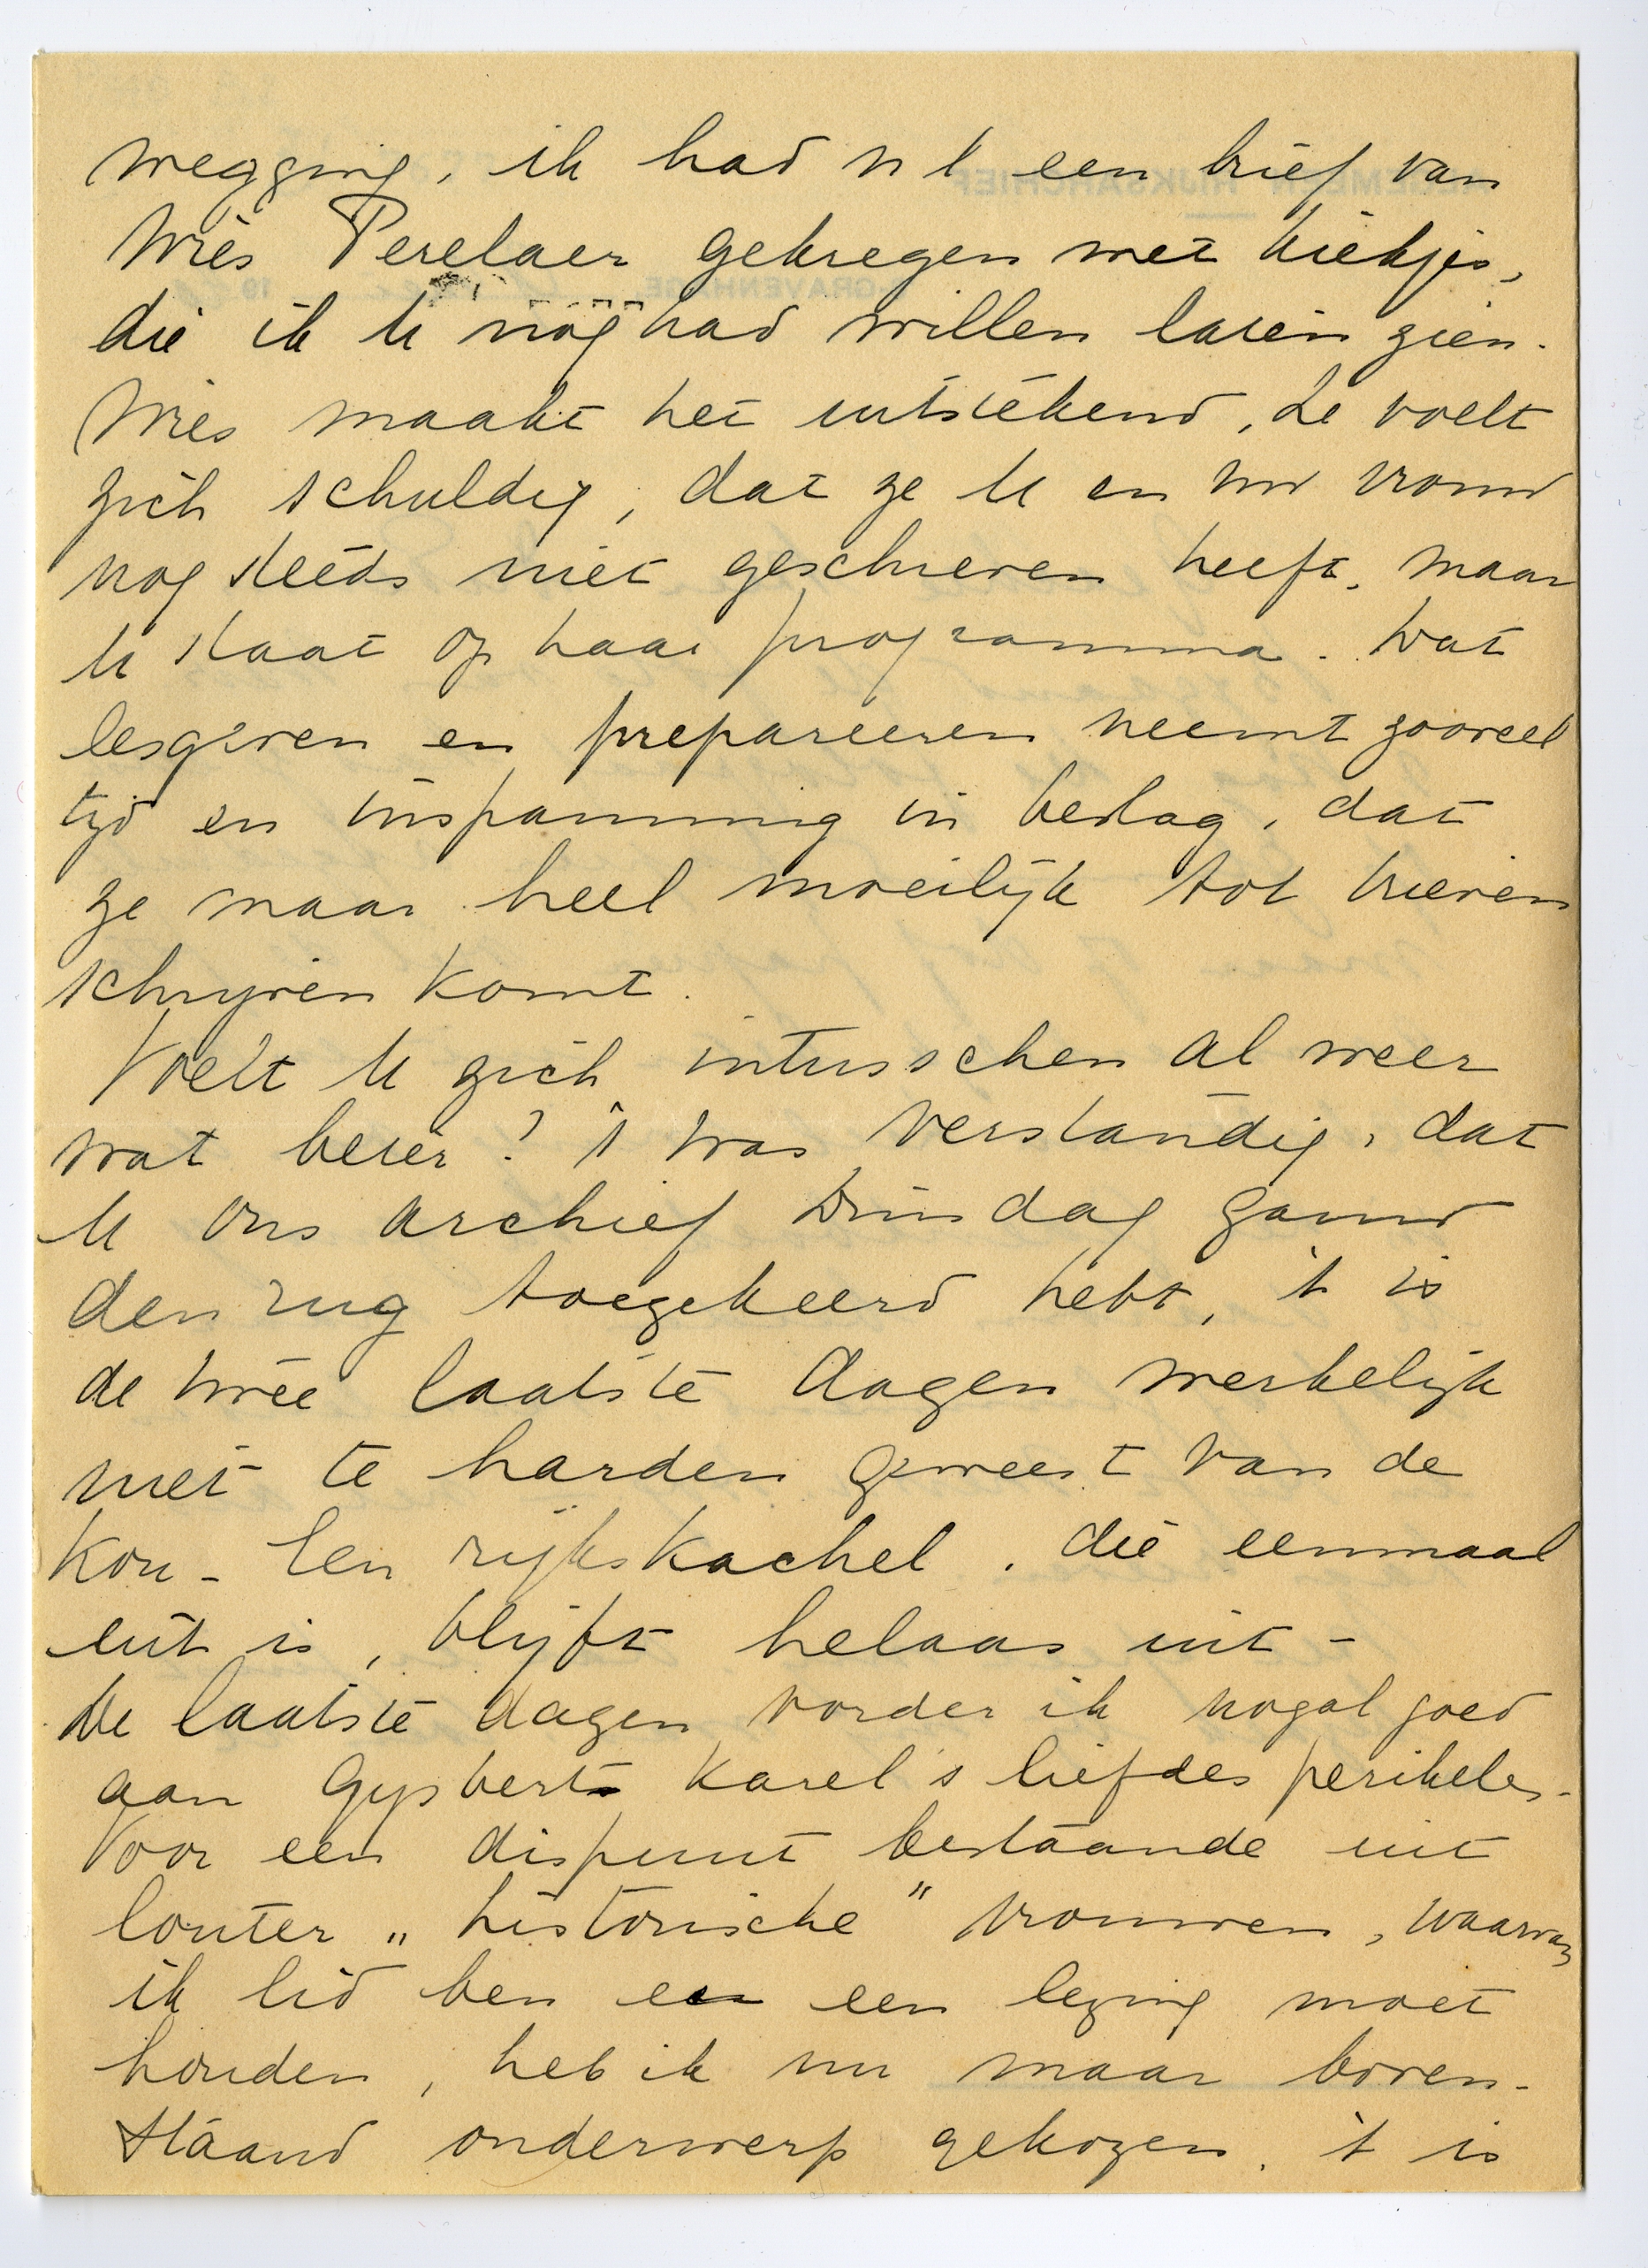 wegging, ik had nl een brief van
Wies Perelaer gekregen met kiekjes,
die ik U nog had willen laten zien.
Wies maakt het uitstekend, ze voelt
zich schuldig, dat ze U en mv vrouw
nog steeds niet geschreven heeft, maar
U staat op haar programma. Wat
lesgeven en prepareeren neemt zooveel
tijd en inspanning in beslag, dat
ze maar heel moeilijk tot brieven
schrijven komt.
Voelt U zich intusschen al weer
wat beter? 't was verstandig, dat
U ons archief Dinsdag gauw
den rug toegekeerd hebt, 't is
de twee laatste dagen werkelijk
niet te harden geweest van de
kou - Een rijkskachel, die eenmaal
uit is, blijft helaas uit -
De laatste dagen vorder ik nogal goed
aan Gijsbert Karel's liefdes perikelen -
Voor een dispuut bestaande uit
louter „historische" vrouwen, waarvan
ik lid ben en een lezing moet
houden, heb ik nu maar boven-
staand onderwerp gekozen. 't is